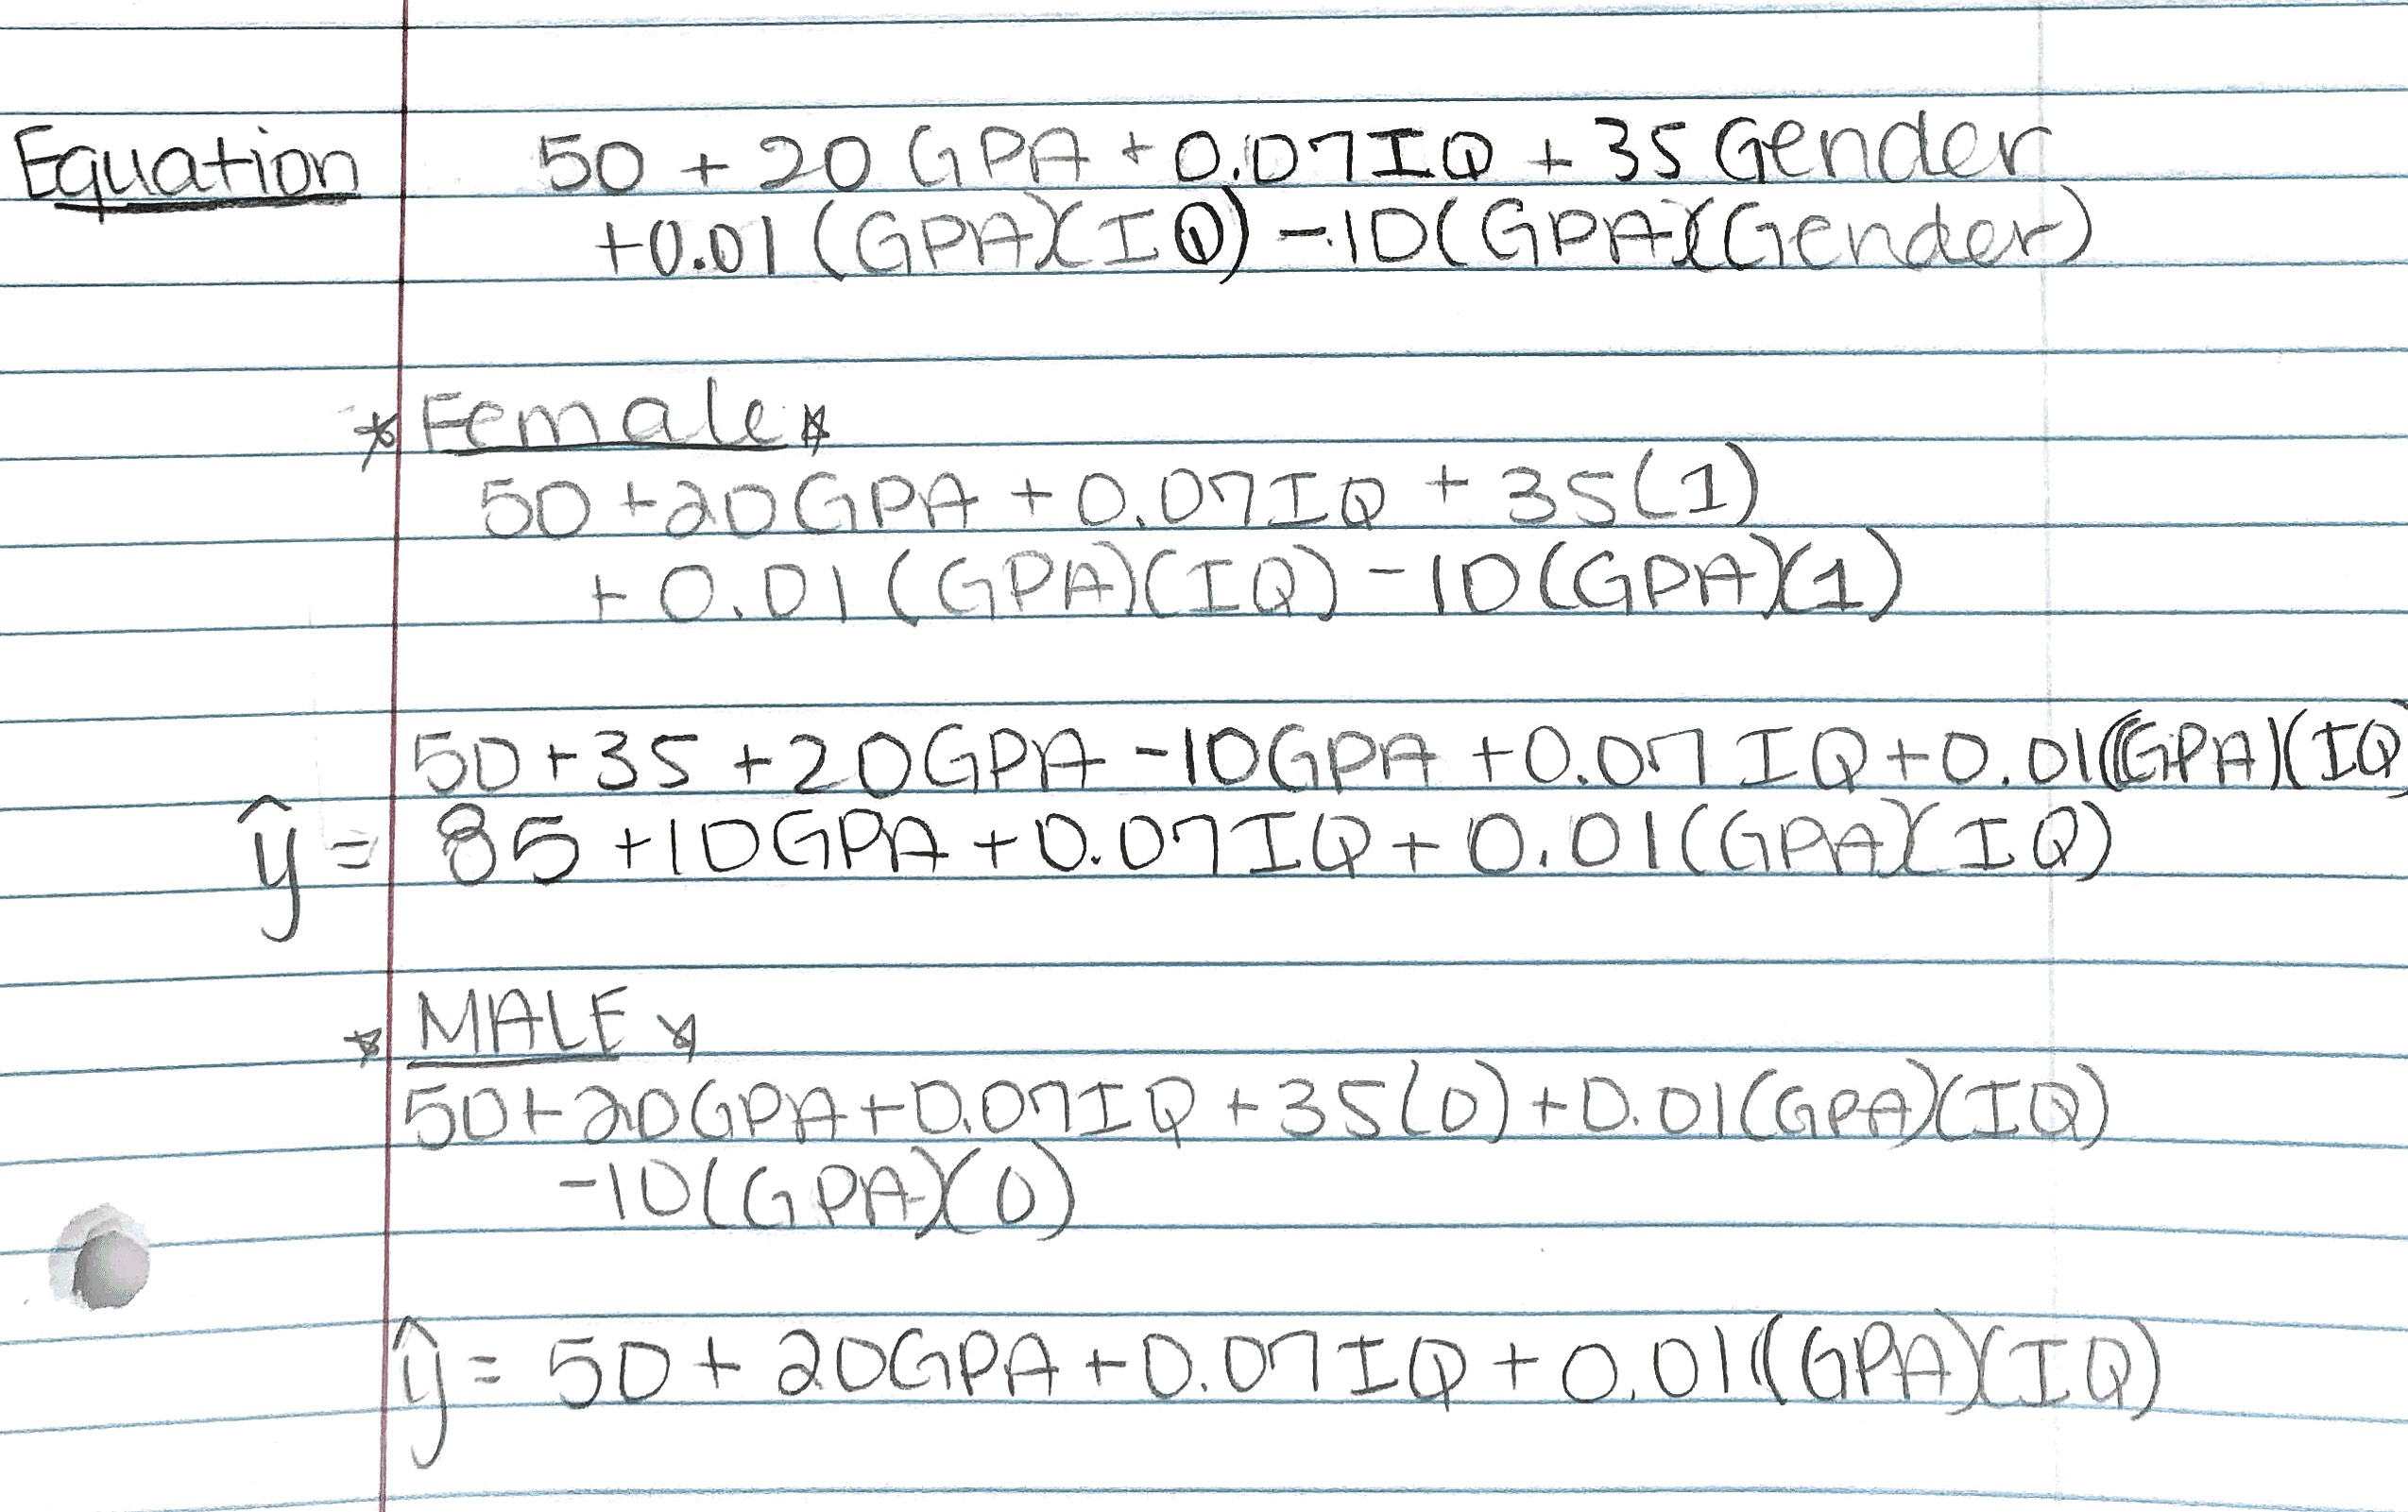 Equation 50 + 20 GPA + 0.07 IQ + 35 Gender
+0.01 (GPA)(IQ) - 10(GPA)(Gender)
* Female *
50 + 20 GPA + 0.07 IQ + 35(1)
+ 0.01 (GPA)(IQ) - 10 (GPA)(1)
50 + 35 + 20GPA - 10GPA + 0.07 IQ + 0.01((GPA)(IQ)
ŷ = 85 + 10GPA + 0.07 IQ + 0.01 (GPA)(IQ)
* MALE *
50 + 20 GPA + 0.07 IQ + 35(0) + 0.01 (GPA)(IQ)
-10(GPA)(0)
ŷ = 50 + 20GPA + 0.07 IQ + 0.01((GPA)(IQ)